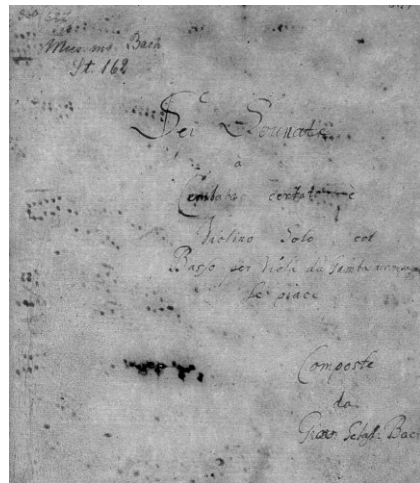 Mus. ms. Bach
St. 162
Sei Sounate
à
Cembalo certato è
Violino Solo col
Basso per Viola da Gamba
se piace
Composte
da
Giov: Sebast: Bach